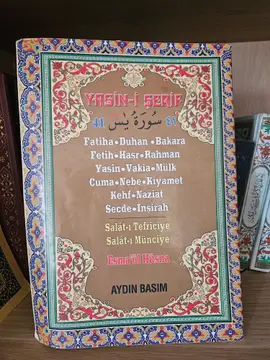 YASİN-İ ŞERİF
41 سُورَةُ يٰسٓ 41
Fatiha•Duhan•Bakara
Fetih•Haşr•Rahman
Yasin•Vakia•Mülk
Cuma•Nebe•Kıyamet
Kehf•Naziat
Secde•İnşirah
Salât-ı Tefriciye
Salât-ı Münciye
Esma'ül Hüsna
AYDIN BASIM